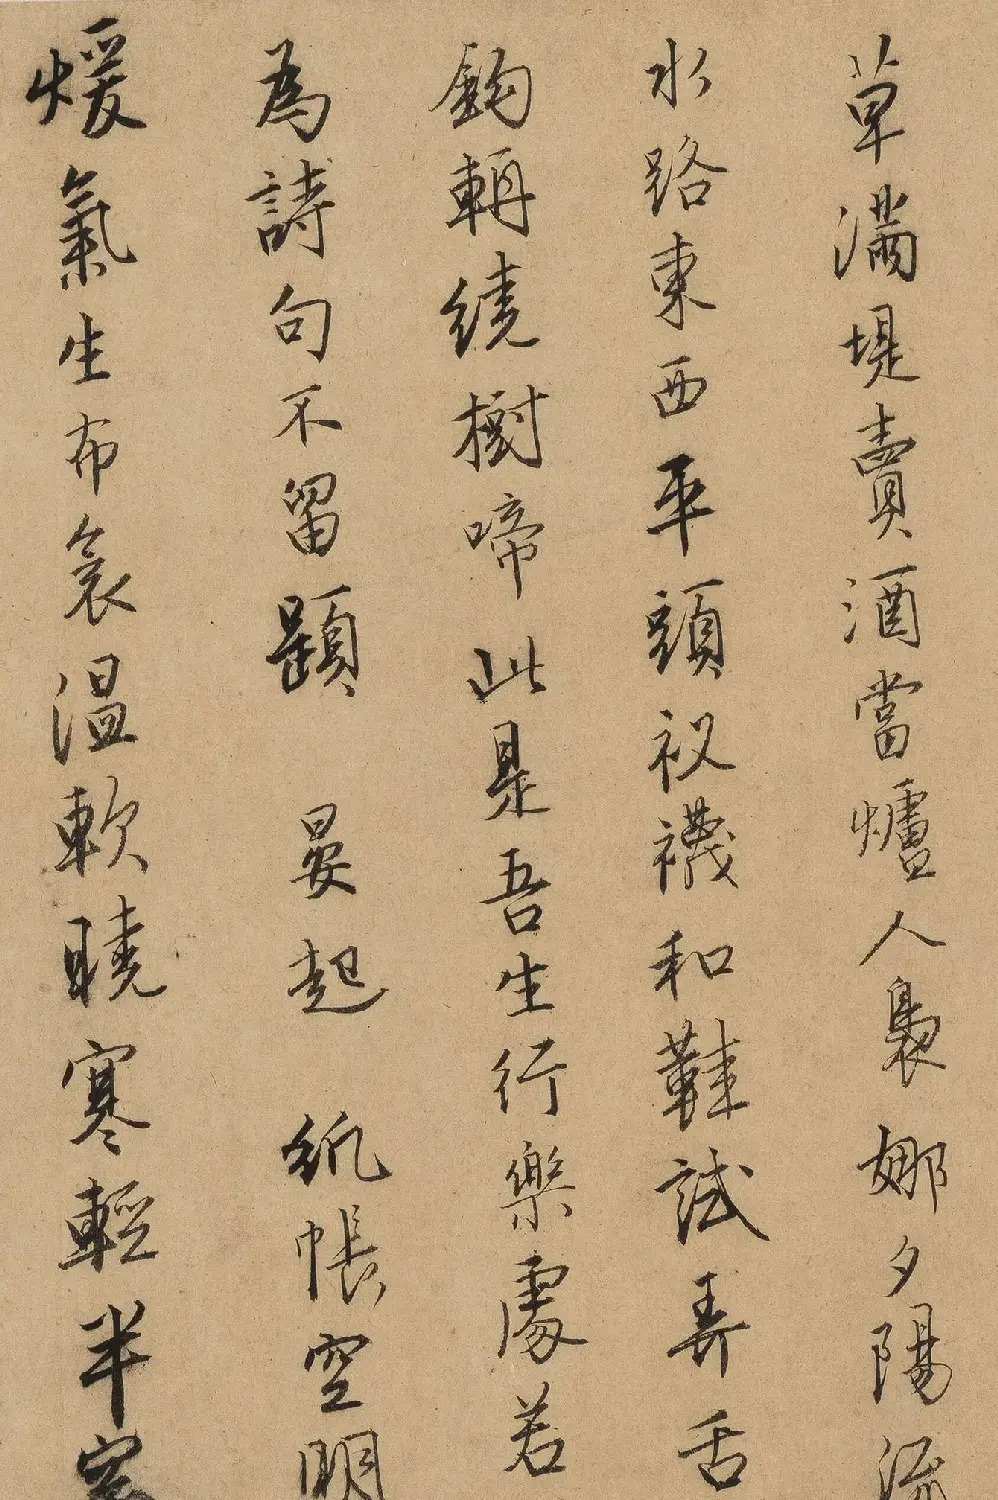 草滿堤賣酒當爐人裊娜夕陽流
水路東西平頭衩襪和鞋試弄舌
鉤輈繞樹啼此是吾生行樂處若
為詩句不留題 晏起 紙帳空明
煖氣生布衾溫軟曉寒輕半窗